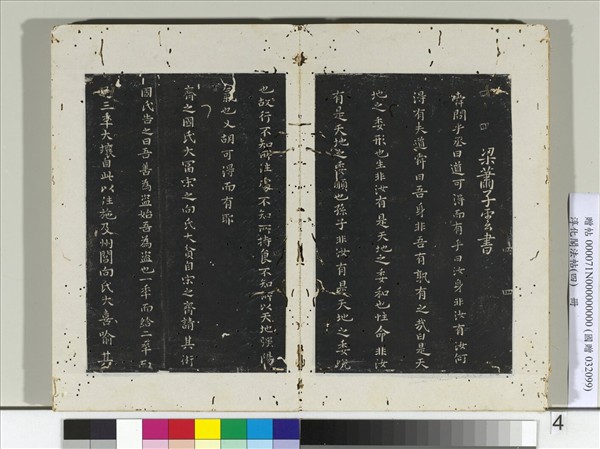 四
梁蕭子雲書
舜問乎丞曰道可得而有乎曰汝身非汝有汝何
得有夫道舜曰吾身非吾有孰有之哉曰是天
地之委形也生非汝有是天地之委和也性命非汝
有是天地之委順也孫子非汝有是天地之委蛻
也故行不知所往處不知所持食不知所以天地強陽
氣也又胡可得而有耶
齊之國氏大富宋之向氏大貧自宋之齊請其術
國氏告之曰吾善為盜始吾為盜也一年而給二年而
三年大壤自此以往施及州閭向氏大喜喻其
贈帖 000071N000000000 (國贈 032099)
淳化閣法帖(四) 冊
4